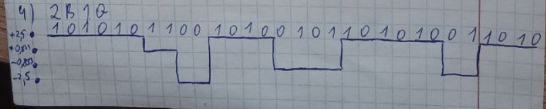 4) 2B1Q
1 0 1 0 1 0 1 1 0 0 1 0 1 0 0 1 0 1 1 0 1 0 1 0 0 1 1 0 1 0
+2,5
+0,833
-0,833
-2,5